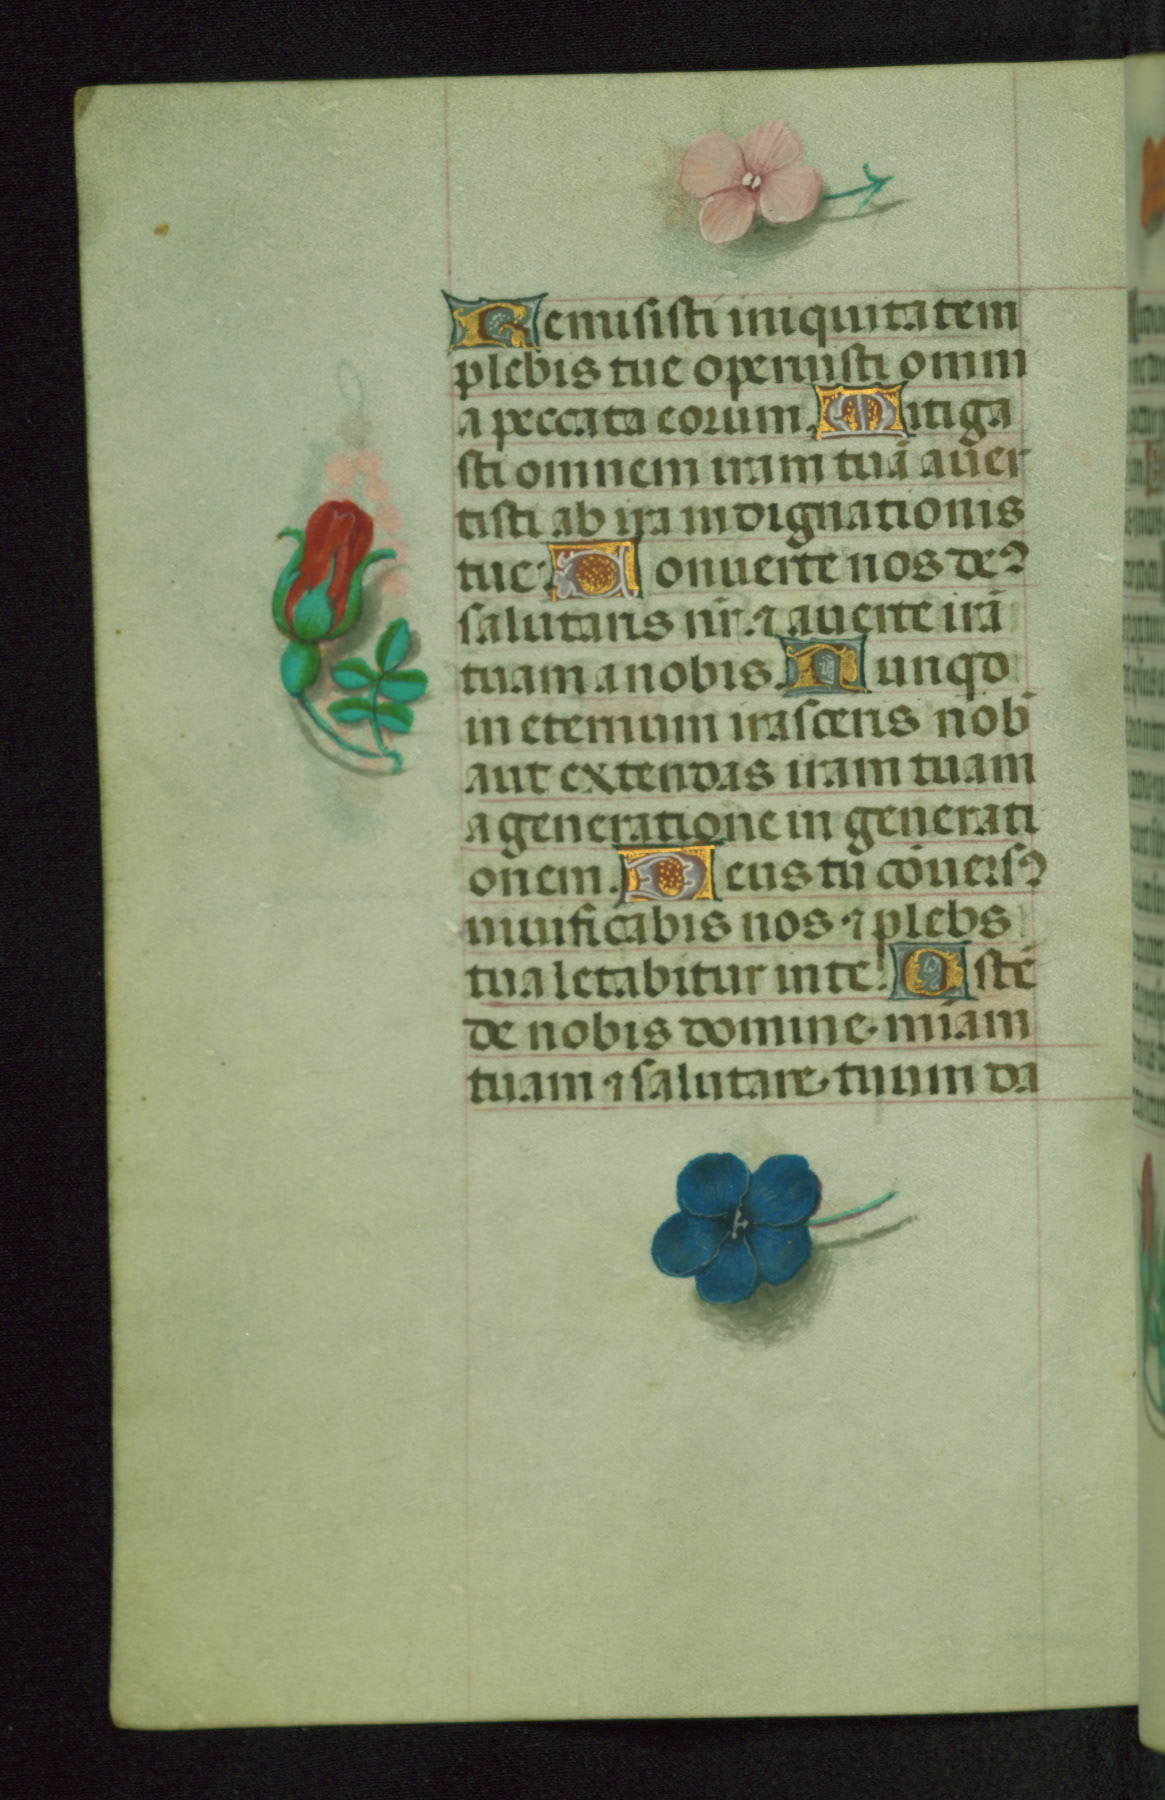 Remisisti iniquitatem
plebis tue operuisti omni
a peccata eorum. Mitiga
sti omnem iram tuā auer
tisti ab ira indignationis
tue: Conuerte nos deꝰ
salutaris nr̄. ⁊ auerte irā
tuam a nobis. Nunqd
in eternum irasceris nob
aut extendas iram tuam
a generatione in generati
onem. Deus tu cōuersꝰ
uiuificabis nos ⁊ plebs
tua letabitur in te. Ostē
de nobis domine miām
tuam ⁊ salutare tuum da